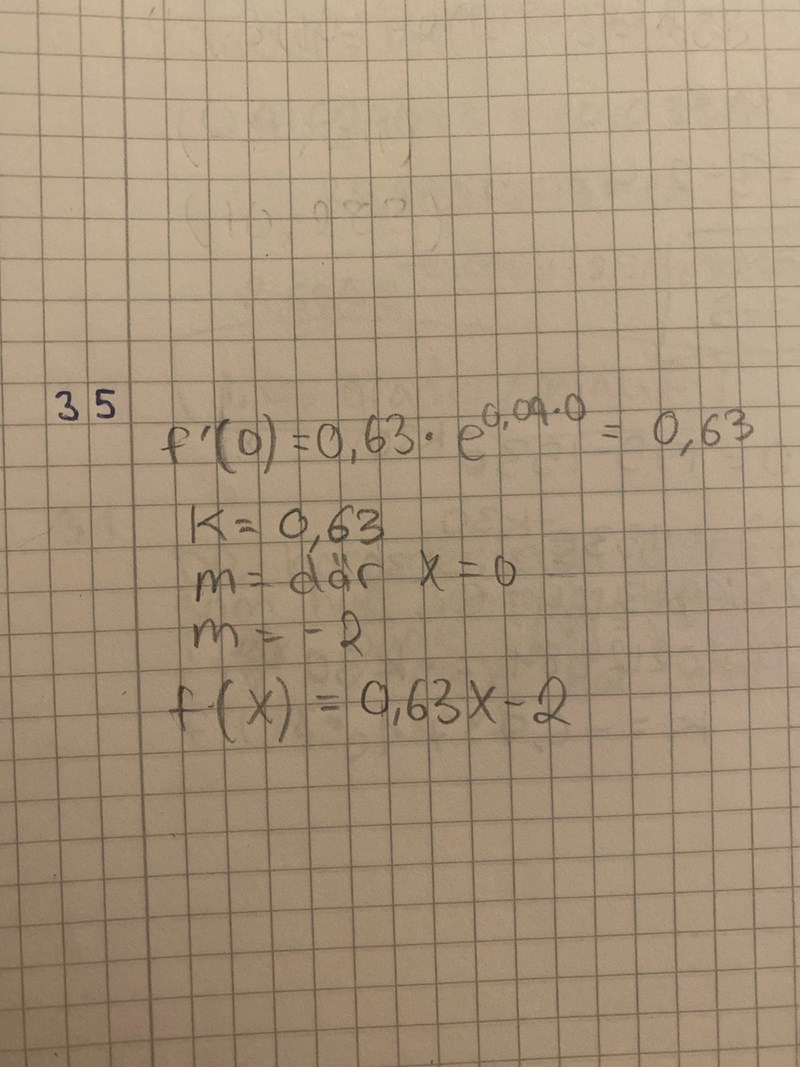 35
f'(0) = 0,63 · e^0,09·0 = 0,63
K = 0,63
m = där x = 0
m = -2
f(x) = 0,63x - 2